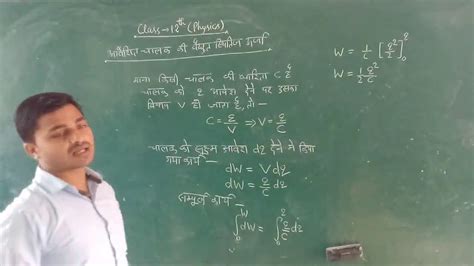 Class-12th (Physics)
आवेशित चालक की वैद्युत स्थितिज ऊर्जा
माना किसी चालक की धारिता C है
चालक को q आवेश देने पर उसका
विभव V हो जाता है, तो —
C = q/V ⇒ V = q/C
चालक को सूक्ष्म आवेश dq देने में किया
गया कार्य —
dW = V dq
dW = q/C dq
सम्पूर्ण कार्य —
∫₀ᵂ dW = ∫₀^q q/C dq
W = 1/C [q²/2]₀^q
W = 1/2 q²/C